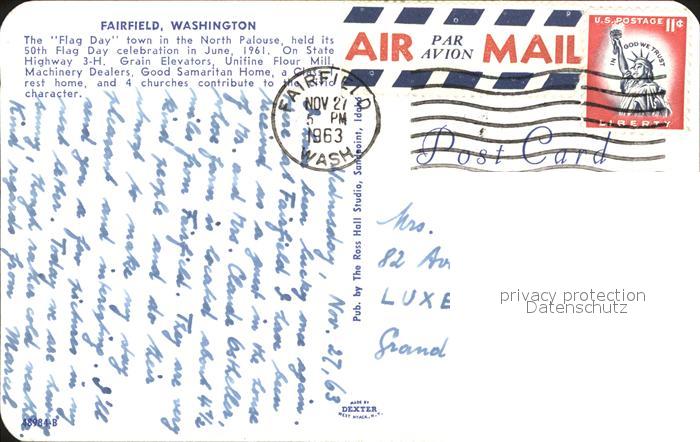 FAIRFIELD, WASHINGTON
The "Flag Day" town in the North Palouse, held its
50th Flag Day celebration in June, 1961. On State
Highway 3-H. Grain Elevators, Unifine Flour Mill,
Machinery Dealers, Good Samaritan Home, a
rest home, and 4 churches contribute to the
character.
AIR PAR AVION MAIL
U.S. POSTAGE 11¢
IN GOD WE TRUST
LIBERTY
FAIRFIELD
NOV 27
5 PM
1963
WASH.
Post Card
Wednesday, Nov. 27, 63
been lucky once again.
at Fairfield I have been
welcomed as a guest in the home
of Mr. and Mrs. Claude
Their farm is located about 4½
miles from Fairfield. They are very
nice people and do their
best to make my stay
pleasant and interesting. I'll
add a few pictures in my
next letter. Today we are having
very bright rather cold weather
Kind regards from Marcel
Pub. by The Ross Hall Studio, Sandpoint, Idaho
Mrs.
82 Av
LUXE
Grand
privacy protection
Datenschutz
MADE BY
DEXTER
WEST NYACK, N.Y.
48984-B